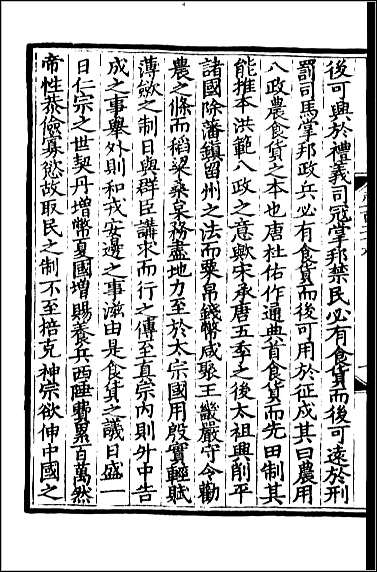 後可興於禮義司寇掌邦禁民必有食貨而後可遠於刑
罰司馬掌邦政兵必有食貨而後可用於征戍其曰農用
八政農食貨之本也唐杜佑作通典首食貨而先田制其
能推本洪範八政之意歟宋承唐五季之後太祖興削平
諸國除藩鎮留州之法而粟帛錢幣咸聚王畿嚴守令勸
農之條而稻粱桑枲務盡地力至於太宗國用殷實輕賦
薄斂之制日與群臣講求而行之傳至真宗內則升中告
成之事舉外則和戎安邊之事滋由是食貨之議日盛一
日仁宗之世契丹增幣夏國增賜養兵西陲費累百萬然
帝性恭儉寡慾故取民之制不至掊克神宗欲伸中國之